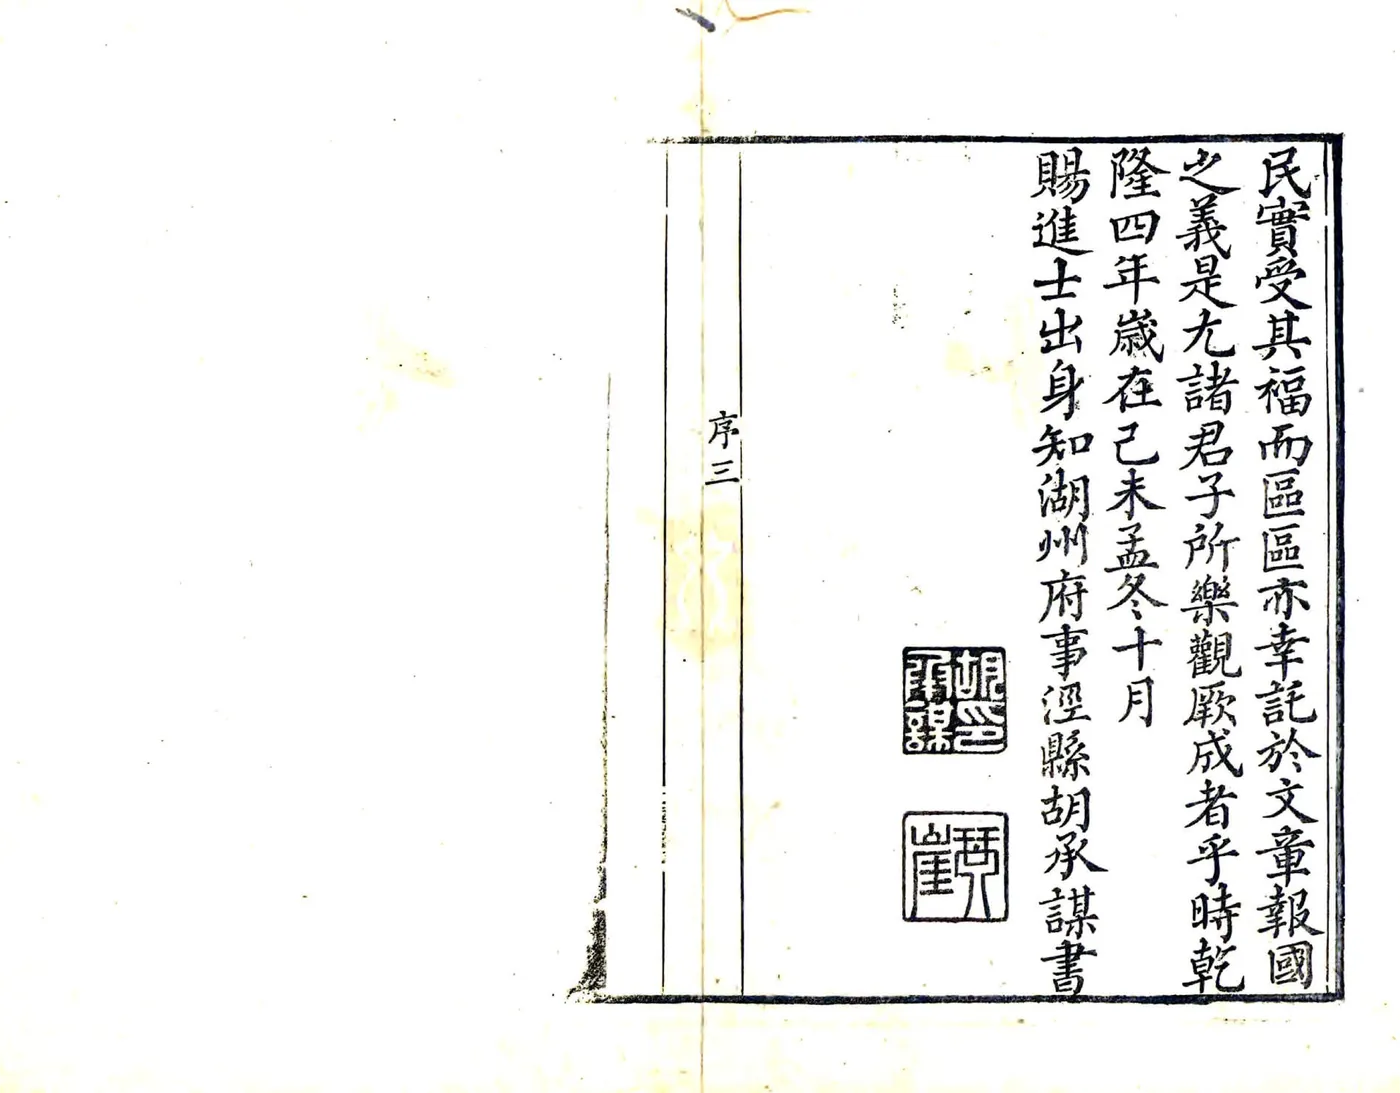 民實受其福而區區亦幸託於文章報國
之義是尤諸君子所樂觀厥成者乎時乾
隆四年歲在己未孟冬十月
賜進士出身知湖州府事涇縣胡承謀書
胡印承謀
序三